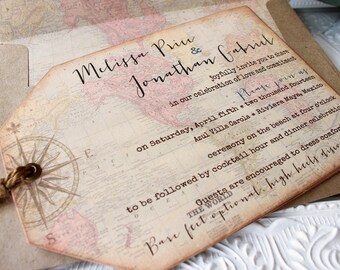 Melissa Price
&
Jonathan Gabriel
joyfully invite you to share
in our celebration of love and commitment
Please join us
on Saturday, April fifth • two thousand fourteen
Azul Villa Carola • Riviera Maya, Mexico
ceremony on the beach at four o'clock
to be followed by cocktail hour and dinner celebration
Guests are encouraged to dress comfortably
THE WORLD
Bare feet optional, high heels
E
S